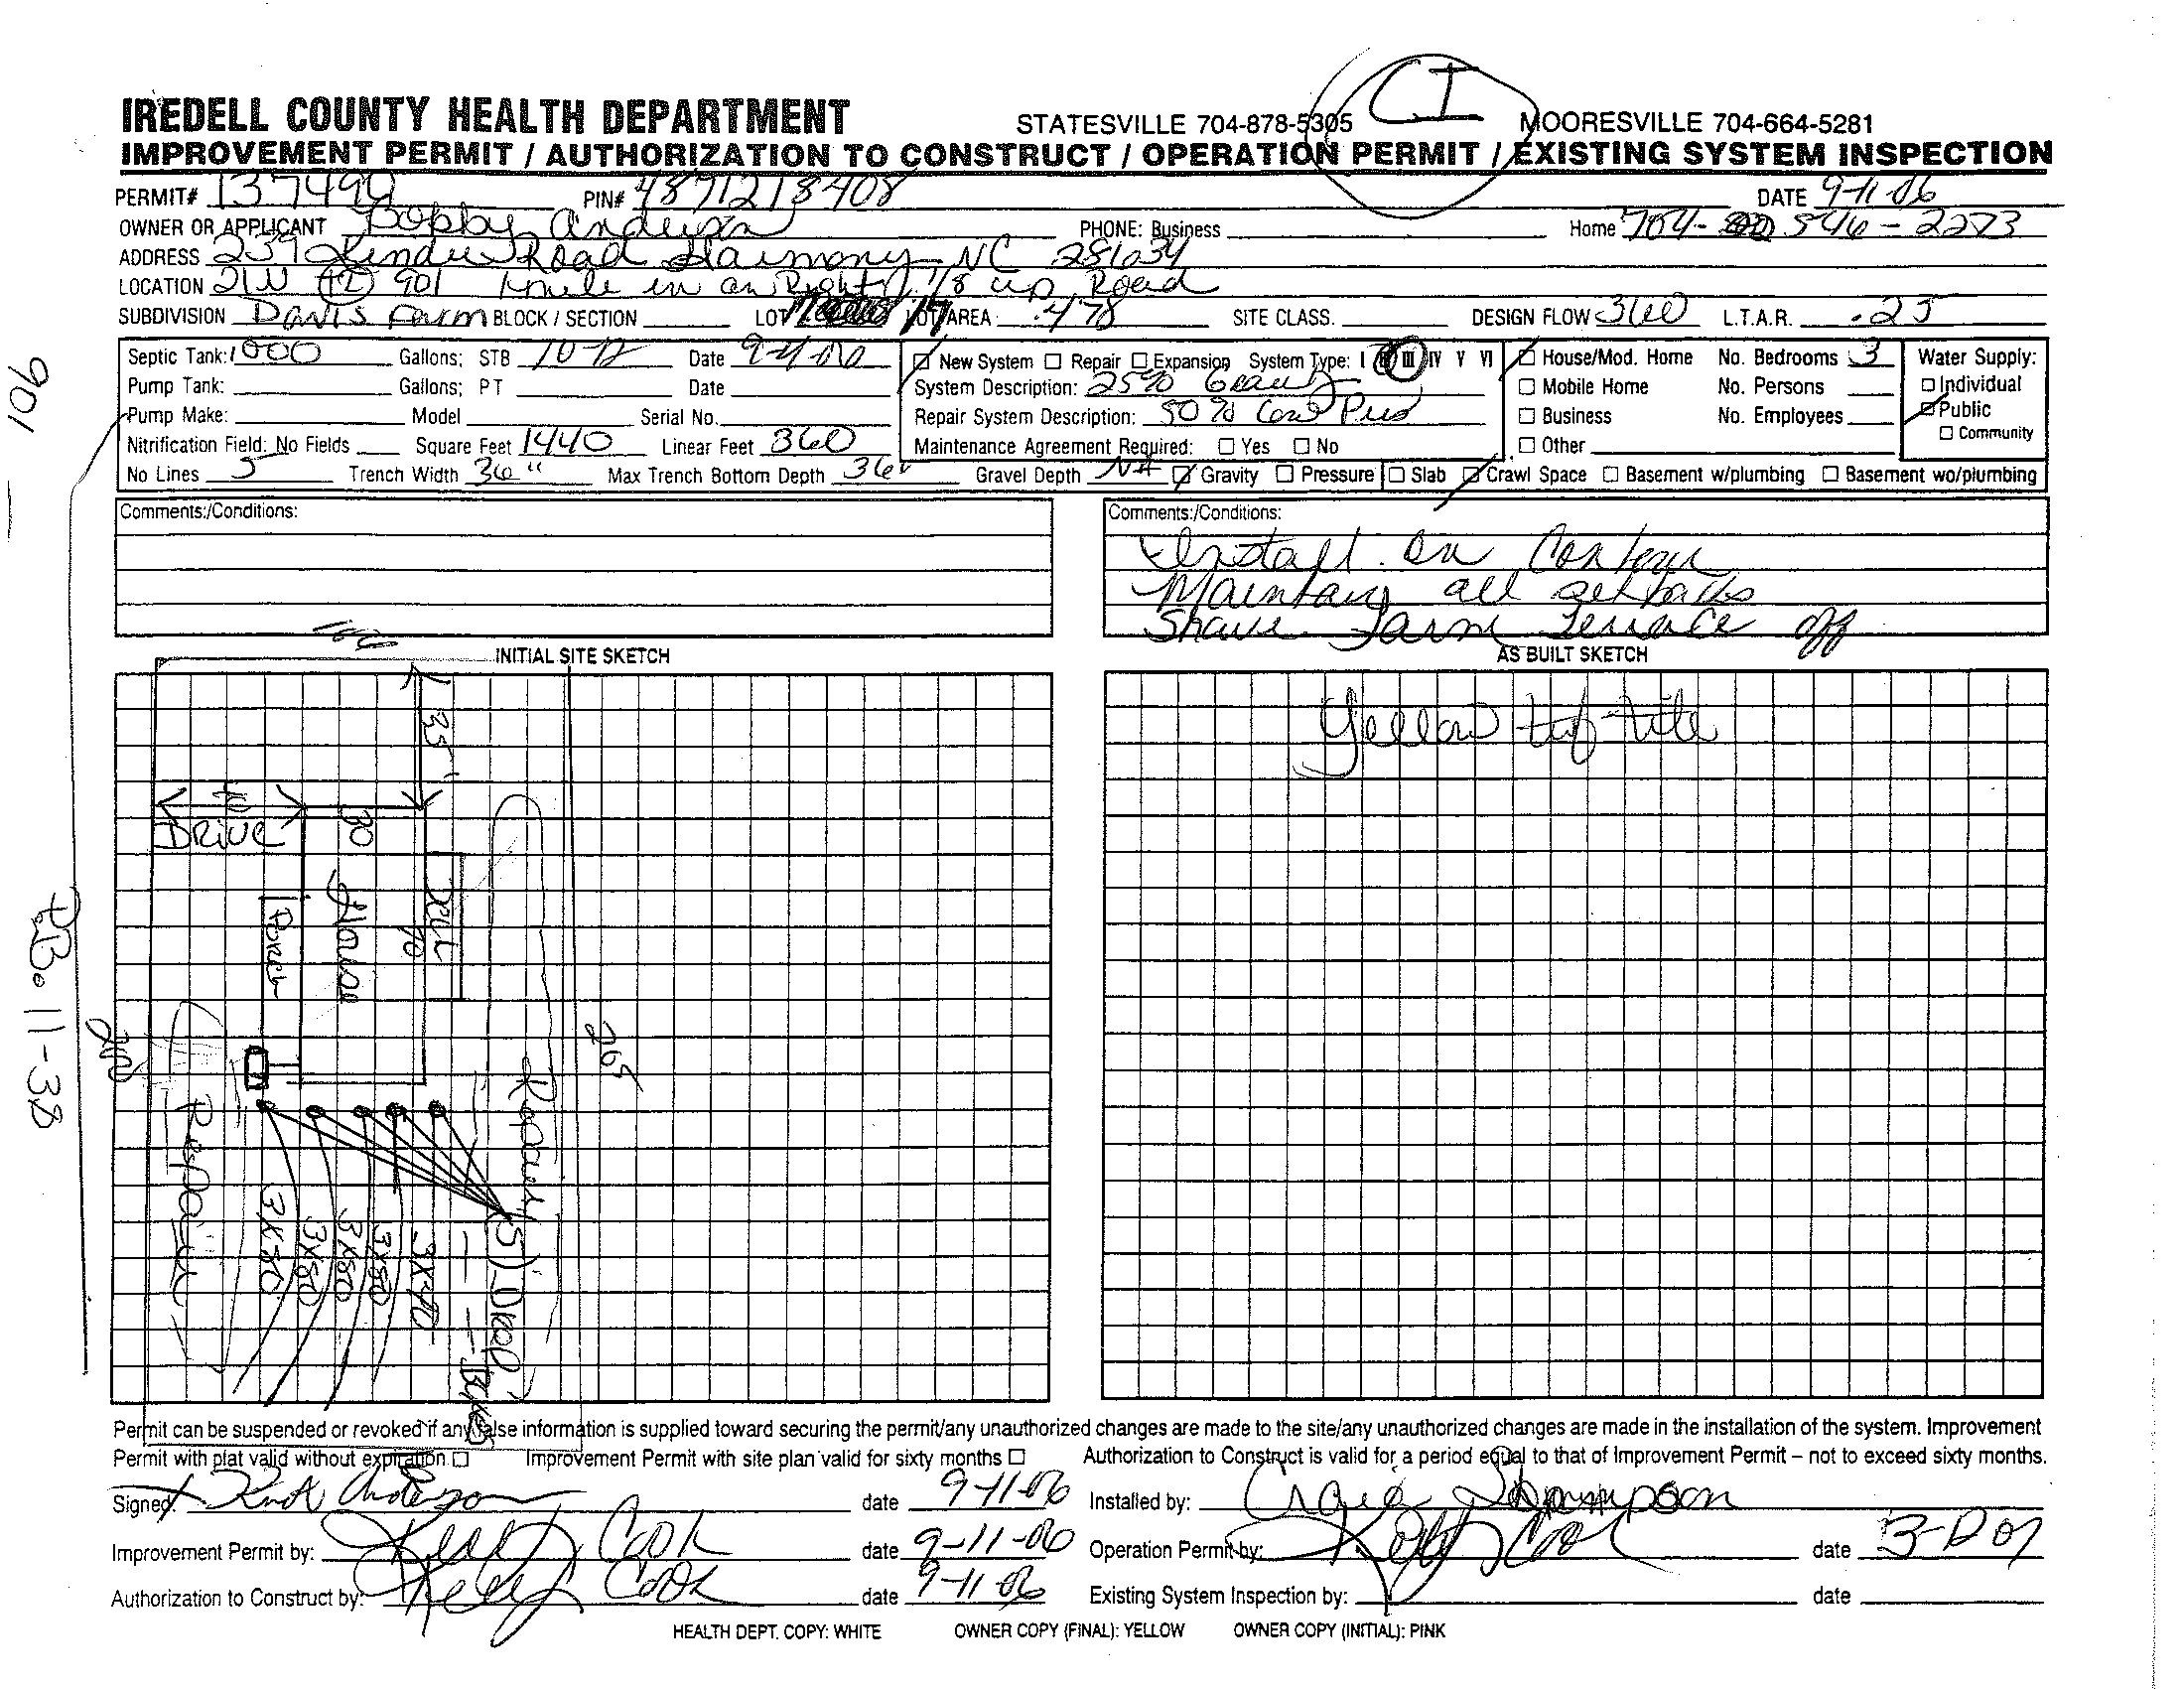 CI
IREDELL COUNTY HEALTH DEPARTMENT STATESVILLE 704-878-5305 MOORESVILLE 704-664-5281
IMPROVEMENT PERMIT / AUTHORIZATION TO CONSTRUCT / OPERATION PERMIT / EXISTING SYSTEM INSPECTION
PERMIT# 137494 PIN# 4871218408 DATE 9-11-06
OWNER OR APPLICANT Bobby Anderson PHONE: Business Home 704- 546-2273
ADDRESS 239 Road Harmony NC 28634
LOCATION 21N 901 1 mile in on Right 1/8 up Road
SUBDIVISION Davis Farm BLOCK / SECTION LOT 17 LOT AREA .478 SITE CLASS. DESIGN FLOW 360 L.T.A.R. .25
Septic Tank: 1000 Gallons; STB 10-12 Date
Pump Tank: Gallons; PT Date
Pump Make: Model Serial No.
Nitrification Field: No Fields Square Feet 1440 Linear Feet 360
No Lines 5 Trench Width 36" Max Trench Bottom Depth 36" Gravel Depth NA Gravity Pressure Slab Crawl Space Basement w/plumbing Basement wo/plumbing
New System Repair Expansion System Type: I II III IV V VI
System Description: 25% Gravity
Repair System Description: 50% Low Pres
Maintenance Agreement Required: Yes No
House/Mod. Home No. Bedrooms 3
Mobile Home No. Persons
Business No. Employees
Other
Water Supply:
Individual
Public
Community
Comments:/Conditions:
Comments:/Conditions:
Install on Contour
Maintain all setbacks
Shave Farm Terrace off
INITIAL SITE SKETCH
901
P.B. 11-38
200
35'
Drive
30
House
70
Porch
265
Repair
Repair
3x80
3x80
3x80
3x80
3x40
(5) Drop
Boxes
AS BUILT SKETCH
Yellow tuf tite
Permit can be suspended or revoked if any false information is supplied toward securing the permit/any unauthorized changes are made to the site/any unauthorized changes are made in the installation of the system. Improvement
Permit with plat valid without expiration Improvement Permit with site plan valid for sixty months Authorization to Construct is valid for a period equal to that of Improvement Permit – not to exceed sixty months.
Signed: Anderson date 9-11-06 Installed by: Craig Thompson
Improvement Permit by: Kelly Cook date 9-11-06 Operation Permit by: Kelly Cook date
Authorization to Construct by: Kelly Cook date 9-11-06 Existing System Inspection by: date
HEALTH DEPT. COPY: WHITE OWNER COPY (FINAL): YELLOW OWNER COPY (INITIAL): PINK